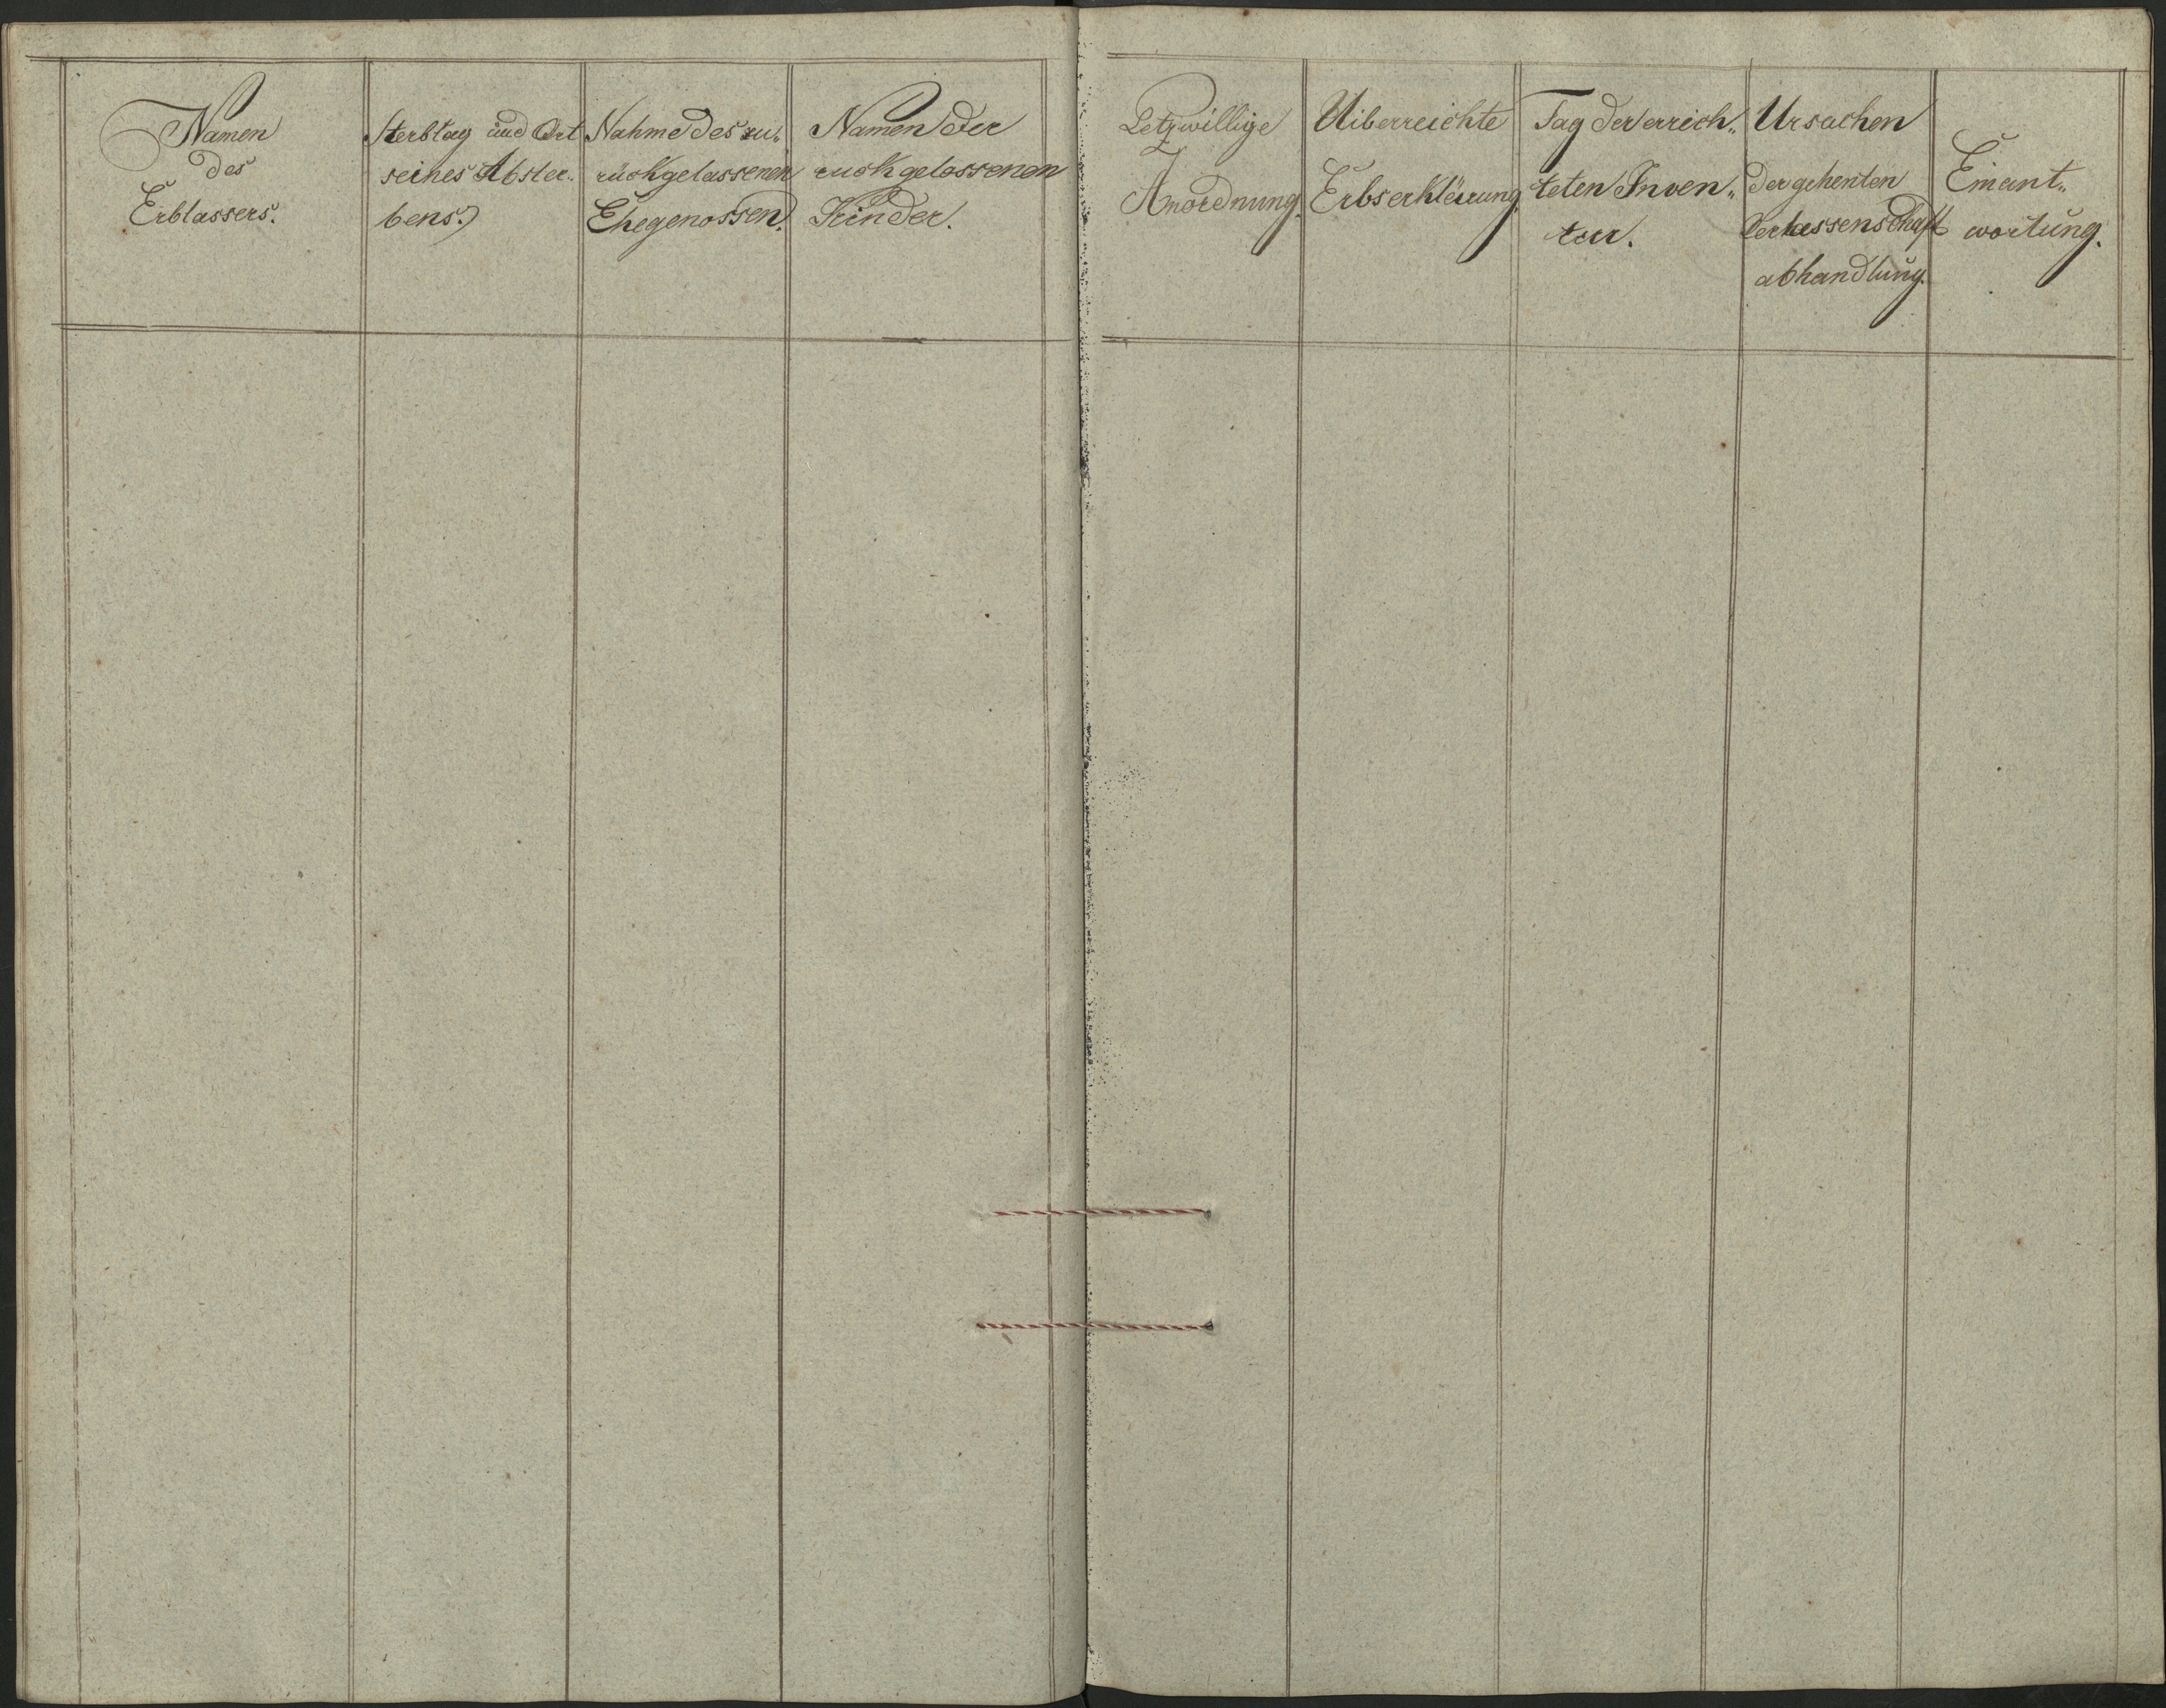 Namen
des
Erblassers.
Sterbtag und Ort
seines Abster-
bens.
Nahme des zu-
rückgelassenen
Ehegenossen.
Namen der
ruckgelassenen
Kinder.
Letzwillige
Anordnung.
Uiberreichte
Erbserklärung.
Tag der errich„
teten Inven„
tur.
Ursachen
der gehenten
Verlassenschaft
abhandlung.
Einant„
wortung.